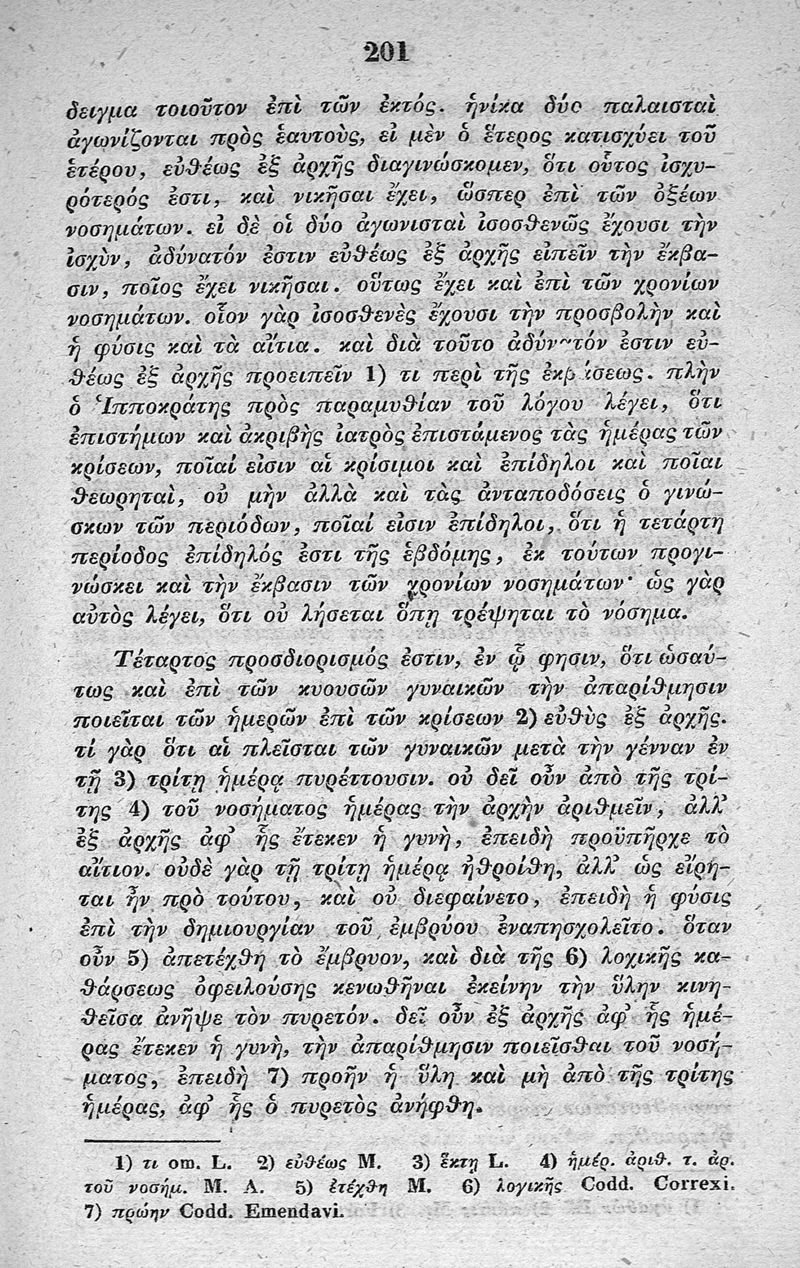 201
δειγμα τοιοῦτον ἐπὶ τῶν ἐκτός. ἡνίκα δύο παλαισταὶ
ἀγωνίζονται πρὸς ἑαυτοὺς, εἰ μὲν ὁ ἕτερος κατισχύει τοῦ
ἑτέρου, εὐθέως ἐξ ἀρχῆς διαγινώσκομεν, ὅτι οὗτος ἰσχυ-
ρότερός ἐστι, καὶ νικῆσαι ἔχει, ὥσπερ ἐπὶ τῶν ὀξέων
νοσημάτων. εἰ δὲ οἱ δύο ἀγωνισταὶ ἰσοσθενῶς ἔχουσι τὴν
ἰσχὺν, ἀδύνατόν ἐστιν εὐθέως ἐξ ἀρχῆς εἰπεῖν τὴν ἔκβα-
σιν, ποῖος ἔχει νικῆσαι. οὕτως ἔχει καὶ ἐπὶ τῶν χρονίων
νοσημάτων. οἷον γὰρ ἰσοσθενὲς ἔχουσι τὴν προσβολὴν καὶ
ἡ φύσις καὶ τὰ αἴτια. καὶ διὰ τοῦτο ἐστιν εὐ-
θέως ἐξ ἀρχῆς προειπεῖν 1) τι περὶ τῆς πλὴν
ὁ Ἱπποκράτης πρὸς παραμυθίαν τοῦ λόγου λέγει, ὅτι
ἐπιστήμων καὶ ἀκριβὴς ἰατρὸς ἐπιστάμενος τὰς ἡμέρας τῶν
κρίσεων, ποῖαί εἰσιν αἱ κρίσιμοι καὶ ἐπίδηλοι καὶ ποῖαι
θεωρηταὶ, οὐ μὴν ἀλλὰ καὶ τὰς ἀνταποδόσεις ὁ γινώ-
σκων τῶν περιόδων, ποῖαί εἰσιν ἐπίδηλοι, ὅτι ἡ τετάρτη
περίοδος ἐπίδηλός ἐστι τῆς ἑβδόμης, ἐκ τούτων προγι-
νώσκει καὶ τὴν ἔκβασιν τῶν χρονίων νοσημάτων· ὡς γὰρ
αὐτὸς λέγει, ὅτι οὐ λήσεται ὅπῃ τρέψηται τὸ νόσημα.
Τέταρτος προσδιορισμός ἐστιν, ἐν ᾧ φησιν, ὅτι ὡσαύ-
τως καὶ ἐπὶ τῶν κυουσῶν γυναικῶν τὴν ἀπαρίθμησιν
ποιεῖται τῶν ἡμερῶν ἐπὶ τῶν κρίσεων 2) εὐθὺς ἐξ ἀρχῆς.
τί γὰρ ὅτι αἱ πλεῖσται τῶν γυναικῶν μετὰ τὴν γένναν ἐν
τῇ 3) τρίτῃ ἡμέρᾳ πυρέττουσιν. οὐ δεῖ οὖν ἀπὸ τῆς τρί-
της 4) τοῦ νοσήματος ἡμέρας τὴν ἀρχὴν ἀριθμεῖν, ἀλλ’
ἐξ ἀρχῆς ἀφ’ ἧς ἔτεκεν ἡ γυνὴ, ἐπειδὴ προϋπῆρχε τὸ
αἴτιον. οὐδὲ γὰρ τῇ τρίτῃ ἡμέρᾳ ἠθροίθη, ἀλλ’ ὡς εἴρη-
ται ἦν πρὸ τούτου, καὶ οὐ διεφαίνετο, ἐπειδὴ ἡ φύσις
ἐπὶ τὴν δημιουργίαν τοῦ ἐμβρύου ἐναπησχολεῖτο. ὅταν
οὖν 5) ἀπετέχθη τὸ ἔμβρυον, καὶ διὰ τῆς 6) λοχικῆς κα-
θάρσεως ὀφειλούσης κενωθῆναι ἐκείνην τὴν ὕλην κινη-
θεῖσα ἀνῆψε τὸν πυρετόν. δεῖ οὖν ἐξ ἀρχῆς ἀφ’ ἧς ἡμέ-
ρας ἔτεκεν ἡ γυνὴ, τὴν ἀπαρίθμησιν ποιεῖσθαι τοῦ νοσή-
ματος, ἐπειδὴ 7) προῆν ἡ ὕλη καὶ μὴ ἀπὸ τῆς τρίτης
ἡμέρας, ἀφ’ ἧς ὁ πυρετὸς ἀνήφθη.
1) τι om. L. 2) εὐθέως M. 3) ἕκτῃ L. 4) ἡμέρ. ἀριθ. τ. ἀρ.
τοῦ νοσήμ. M. A. 5) ἐτέχθη M. 6) λογικῆς Codd. Correxi.
7) πρώην Codd. Emendavi.